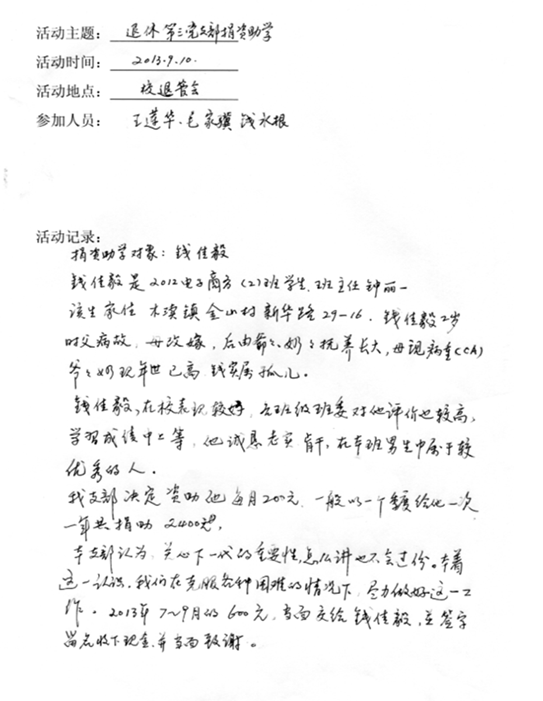 活动主题： 退休第三党支部捐资助学
活动时间： 2013.9.10.
活动地点： 校退管会
参加人员： 王莲华、毛家骥 钱水根
活动记录：
捐资助学对象：钱佳毅
钱佳毅是2012电子商务(2)班学生，班主任钟丽一
该生家住 木渎镇金山村新华路29-16. 钱佳毅2岁
时父病故，母改嫁，后由爷々奶々抚养长大，母现病重(CA)
爷々奶现年世已高 钱实属孤儿。
钱佳毅，在校表现较好，在班级班委对他评价也较高，
学习成绩中上等，他诚恳老实肯干，在本班男生中属于较
优秀的人。
我支部决定资助他每月200元，一般以一个季度给他一次
一年共捐助2400元，
本支部认为，关心下一代的重要性，怎么讲也不会过份。本着
这一认识，我们在克服各种困难的情况下，尽力做好这一工
作。2013年7~9月的600元，当面交给钱佳毅，并签字
留名收下现金，并当面致谢。